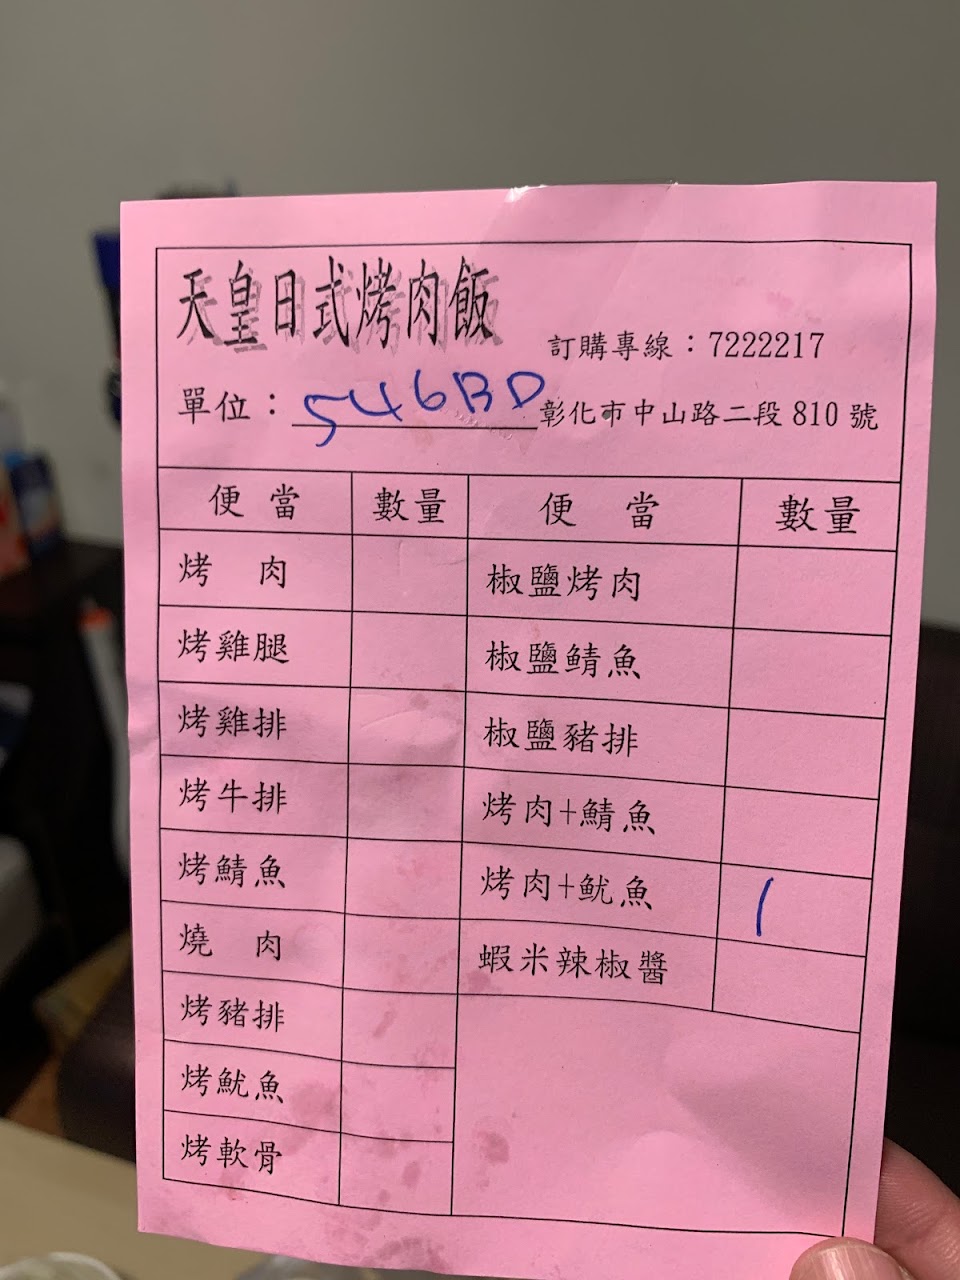 天皇日式烤肉飯
訂購專線：7222217
單位： 546BD 彰化市中山路二段 810 號
便 當 數量 便 當 數量
烤 肉 椒鹽烤肉
烤雞腿 椒鹽鯖魚
烤雞排 椒鹽豬排
烤牛排 烤肉+鯖魚
烤鯖魚 烤肉+魷魚 1
燒 肉 蝦米辣椒醬
烤豬排
烤魷魚
烤軟骨